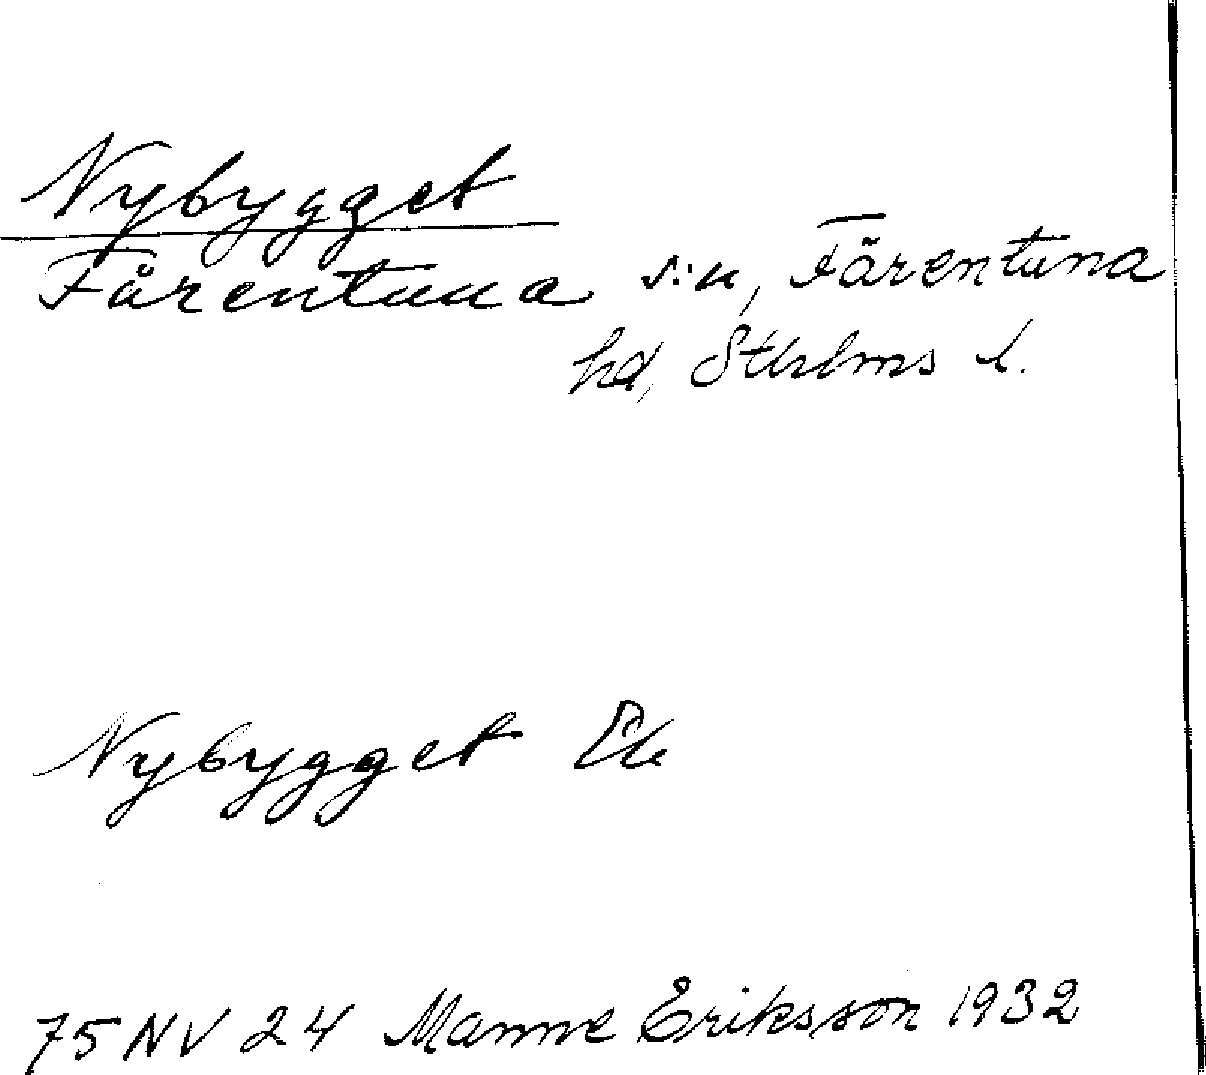 Nybygget
Färentuna s:n, Färentuna
hd, Sthlms l.
Nybygget Ek
75 NV 24 Manne Eriksson 1932